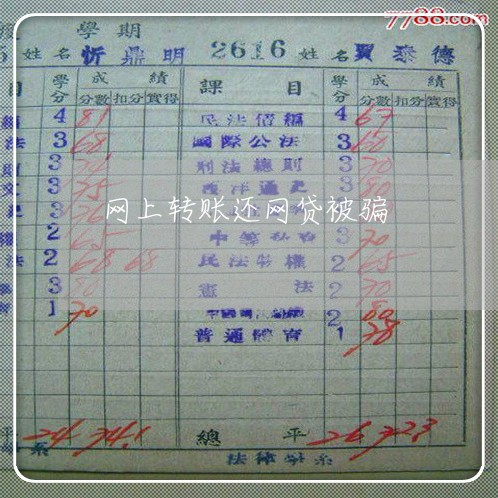 7788.com
學期
姓名 忻鼎明 2616 姓名 賈泰德
目 學分 成績 課目 學分 成績
分數 扣分 實得 分數 扣分 實得
4 81 民法債編 4 67
法 3 68 國際公法 3 60
3 刑法總則 3 70
3 75 西洋通史 3 80
3 76 3
网上转账还网贷被骗
2 65 3 70
法 2 68 68 民法物權 2 65
3 80 憲法 2 70
1 70 2 80
普通體育 1 78
平 24 74.1 總平 26 72.3
系 法律學系